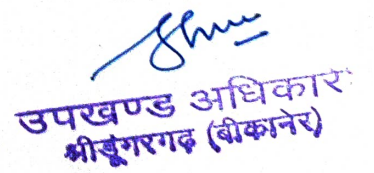 उपखण्ड अधिकार
श्रीडूंगरगढ़ (बीकानेर)